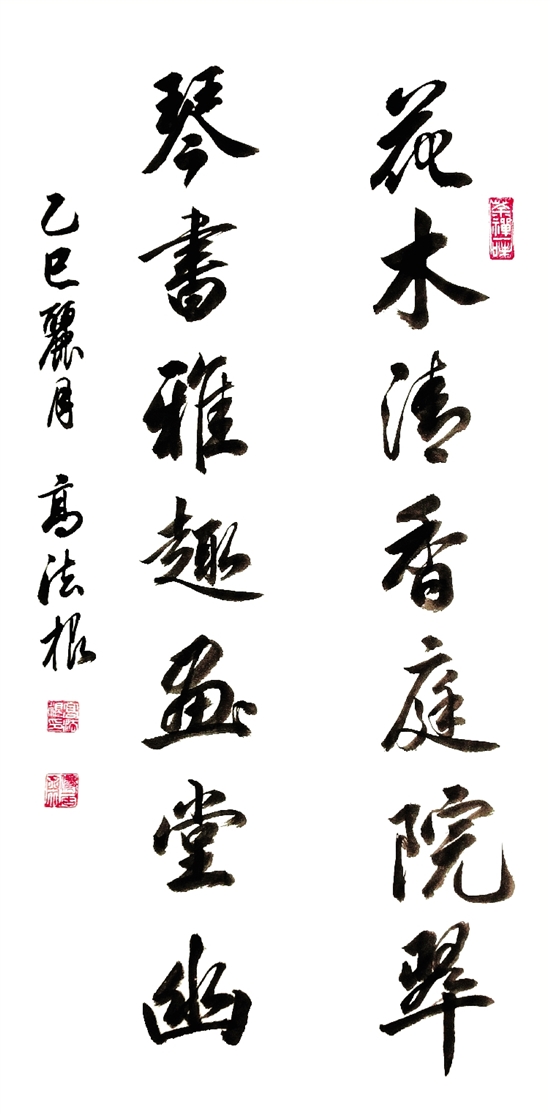 花木清香庭院翠
琴書雅趣畫堂幽
乙巳麗月 高法根
茶禪一味